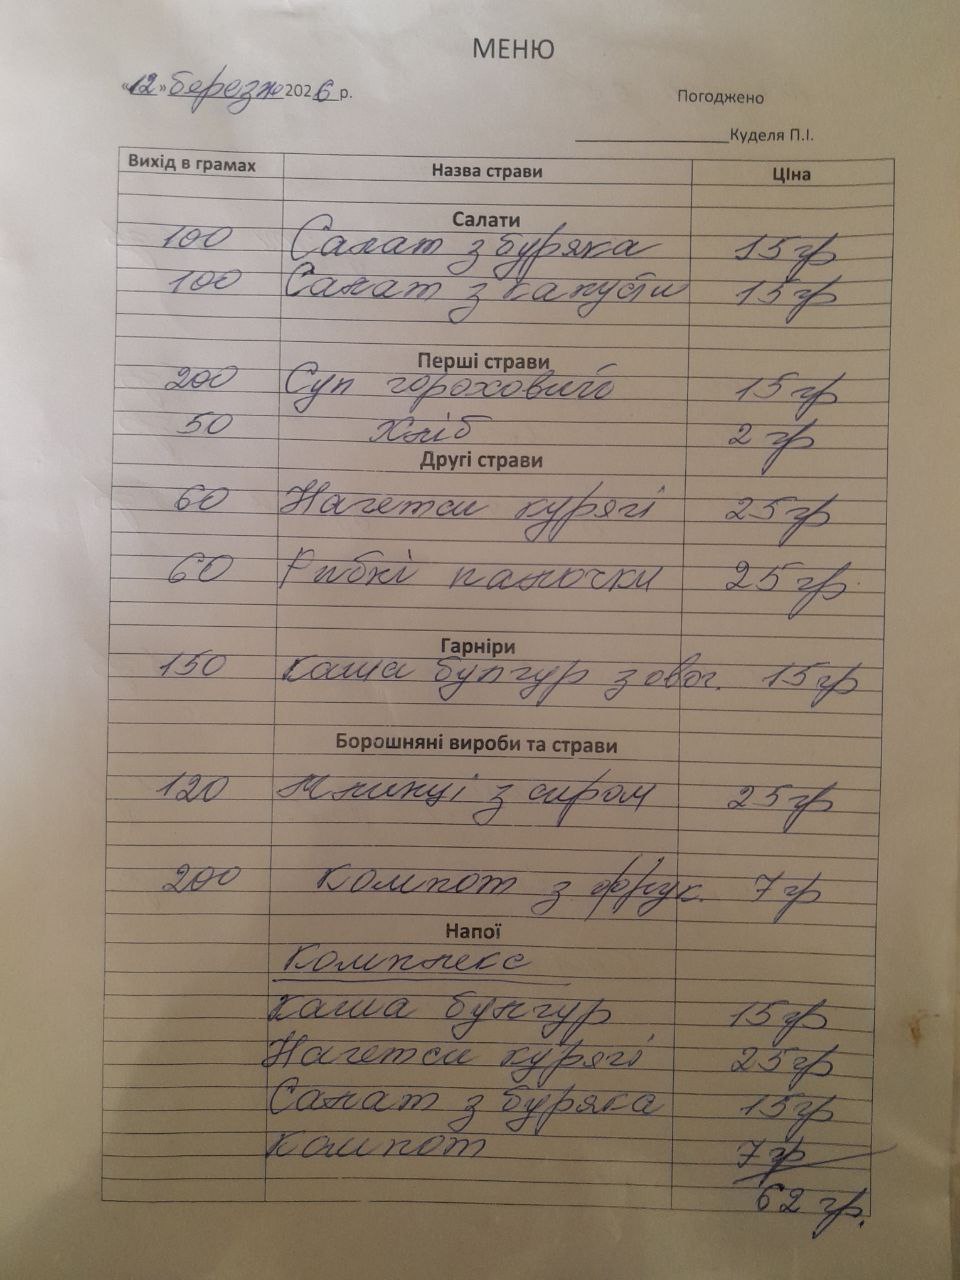 МЕНЮ
«12» березня 2026 р.
Погоджено
Куделя П.І.
Вихід в грамах Назва страви Ціна
Салати
100 Салат з буряка 15 гр
100 Салат з капусти 15 гр
Перші страви
200 Суп гороховий 15 гр
50 Хліб 2 гр
Другі страви
60 Нагетси курячі 25 гр
60 Рибні палочки 25 гр.
Гарніри
150 Каша булгур з овоч. 15 гр
Борошняні вироби та страви
120 Млинці з сиром 25 гр
200 Компот з фрук. 7 гр
Напої
Комплекс
Каша булгур 15 гр
Нагетси курячі 25 гр
Салат з буряка 15 гр
Компот 7 гр
62 гр.